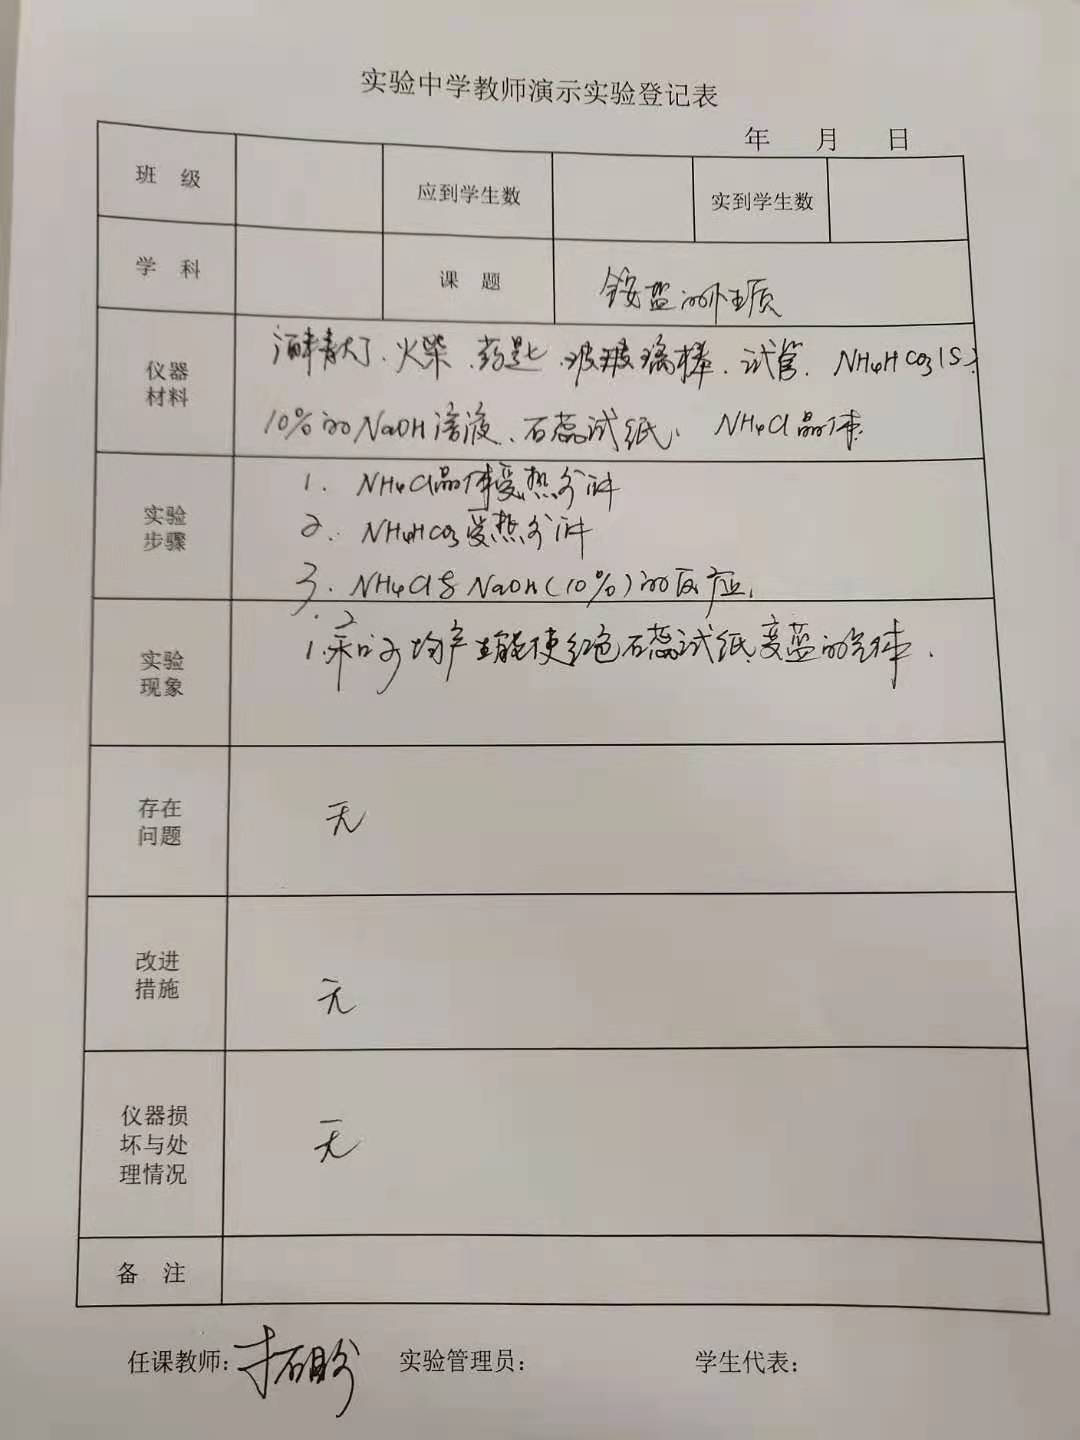 实验中学教师演示实验登记表
年 月 日
班 级 应到学生数 实到学生数
学 科 课 题 铵盐的性质
仪器材料 酒精灯、火柴、药匙、玻璃棒、试管、NH4HCO3(S)、
10%的NaOH溶液、石蕊试纸、NH4Cl晶体
实验步骤 1. NH4Cl晶体受热分解
2. NH4HCO3受热分解
3. NH4Cl与NaOH(10%)的反应.
实验现象 1. 均产生能使红色石蕊试纸变蓝的气体.
存在问题 无
改进措施 无
仪器损坏与处理情况 无
备 注
任课教师: 实验管理员: 学生代表: